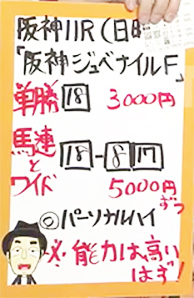 阪神11R(日曜
「阪神ジュベナイルF」
単勝 18 3000円
馬連とワイド 18-8 17
5000円ずつ
◎パーソナルハイ
能力は高い
はず!